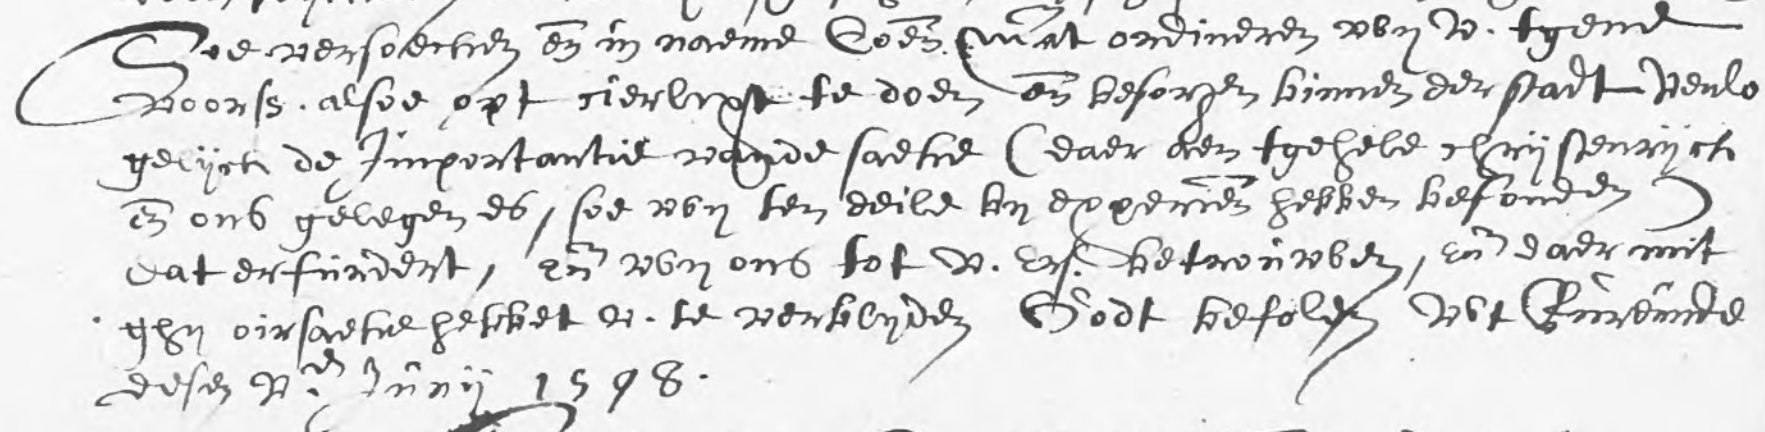 Soe versoecken en̄ in naeme Co. Ma.t ordineren wy v. tgene
voorss. alsoe opt cierlyxst te doen en̄ besorgen binnen der stadt Venlo
gelyck de Importantie vande saecke (daer aen tgehele chrystenryck
en̄ ons gelegen es, soe wy ten deile by experien̄ hebben bevonden)
dat erfurdert, en̄ wy ons tot v. Ers. betrouwen, en̄ daer mit
ghy oirsaecke hebbet v. te verblyden Godt bevolen Wt Ruremunde
desen v.en Junij 1598.